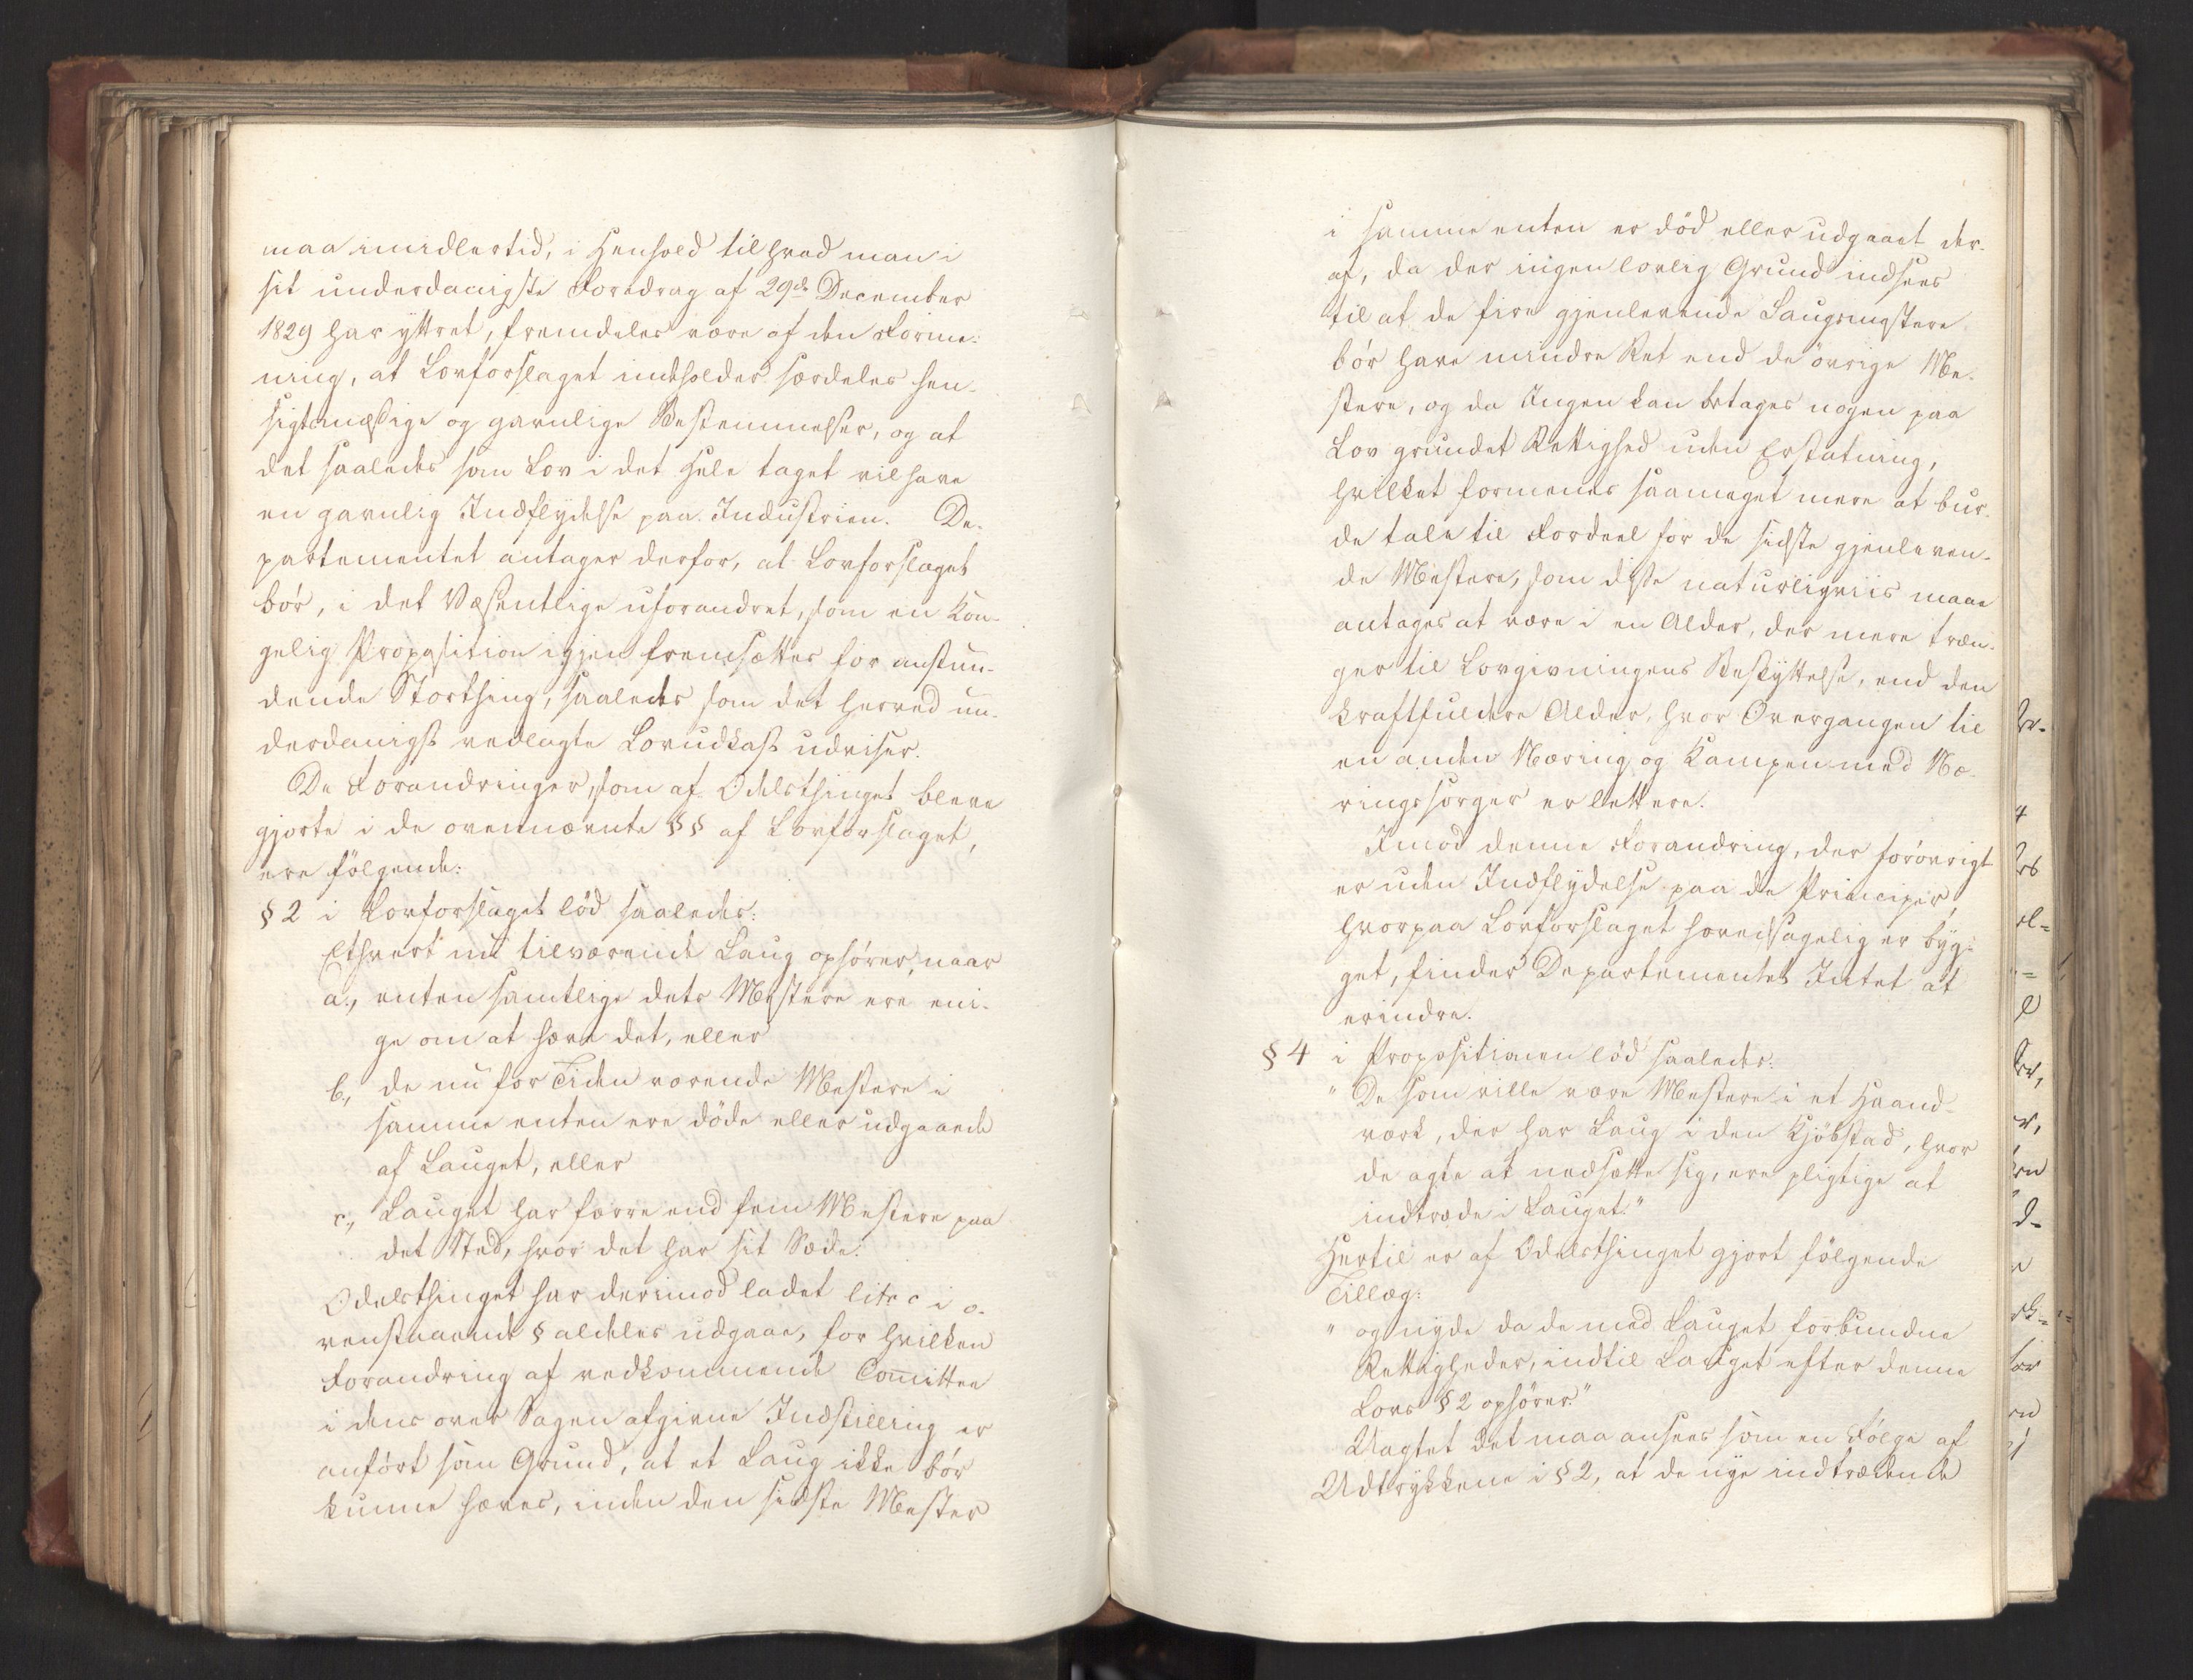 maa imidlertid, i Henhold til hvad man i
sit underdanigste Foredrag af 29de December
1829 har yttret, fremdeles være af den Forme-
ning, at Lovforslaget indholder særdeles hen-
sigtsmæssige og gavnlige Bestemmelser, og at
det saaledes som Lov i det Hele taget vil have
en gavnlig Indflydelse paa Industrien. De-
partementet antager derfor, at Lovforslaget
bør, i det Væsentlige uforandret, som en Kon-
gelig Proposition igjen fremsættes for anstun-
dende Storthing, saaledes som det herved un-
derdanigst vedlagte Lovudkast udviser.
De Forandringer, som af Odelsthinget bleve
gjorte i de ovennævnte §§ af Lovforslaget,
ere følgende:
§ 2 i Lovforslaget lød saaledes:
Ethvert nu tilværende Laug ophører, naar
a., enten samtlige dets Mestere ere eni-
ge om at hæve det, eller
b., de nu for Tiden værende Mestere i
samme enten ere døde eller udgaaede
af Lauget, eller
c., Lauget har færre end fem Mestere paa
det Sted, hvor det har sit Sæde.
Odelsthinget har derimod ladet litr c i o-
venstaaende § aldeles udgaae, for hvilken
Forandring af vedkommende Comittee
i dens over Sagen afgivne Indstilling er
anført som Grund, at et Laug ikke bør
kunne hæves, inden den sidste Mester
i samme enten er død eller udgaaet der-
af, da der ingen lovlig Grund indsees
til at de fire gjenlevende Laugsmestere
bør have mindre Ret end de øvrige Me-
stere, og da Ingen kan betages nogen paa
Lov grundet Rettighed uden Erstatning,
hvilket formenes saameget mere at bur-
de tale til Fordeel for de sidste gjenleven-
de Mestere, som disse naturligviis maae
antages at være i en Alder, der mere træn-
ger til Lovgivningens Beskyttelse, end den
kraftfuldere Alder, hvor Overgangen til
en anden Næring og Kampen med Næ-
ringssorger er lettere.
Imod denne Forandring, der forøvrigt
er uden Indflydelse paa de Principer,
hvorpaa Lovforslaget hovedsagelig er byg-
get, finder Departementet Intet at
erindre.
§ 4 i Propositionen lød saaledes:
"De som ville være Mestere i et Haand-
værk, der har Laug i den Kjøbstad, hvor
de agte at nedsætte sig, ere pligtige at
indtræde i Lauget."
Hertil er af Odelsthinget gjort følgende
Tillæg:
"og nyde da de med Lauget forbundne
Rettigheder, indtil Lauget efter denne
Lovs § 2 ophører."
Uagtet det maa ansees som en Følge af
Udtrykkene i § 2, at de nye indtrædende